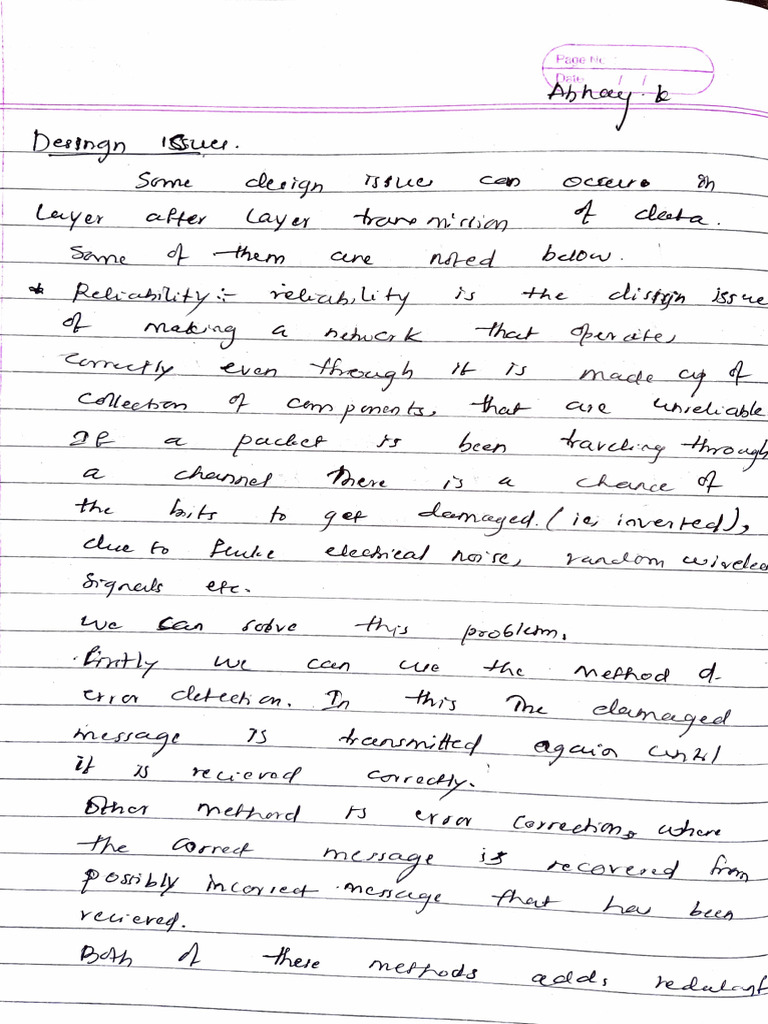 Page No :
Date / /
Abhay. k
Desingn issues.
Some design issue can occure in
Layer after Layer transmission of data.
Some of them are noted below.
* Reliability :- reliability is the design issue
of making a network that operates
correctly even through it is made up of
collection of components, that are unreliable
If a packet is been traveling through
a channel there is a chance of
the bits to get damaged. (ie, inverted),
due to fluke electrical noise, random wireless
signals etc.
we can solve this problem.
Firstly we can use the method of
error detection. In this The damaged
message is transmitted again until
it is recieved correctly.
Other method is error correction, where
the correct message is recovered from
possibly incorrect message that has been
recieved.
Both of these methods adds redulant